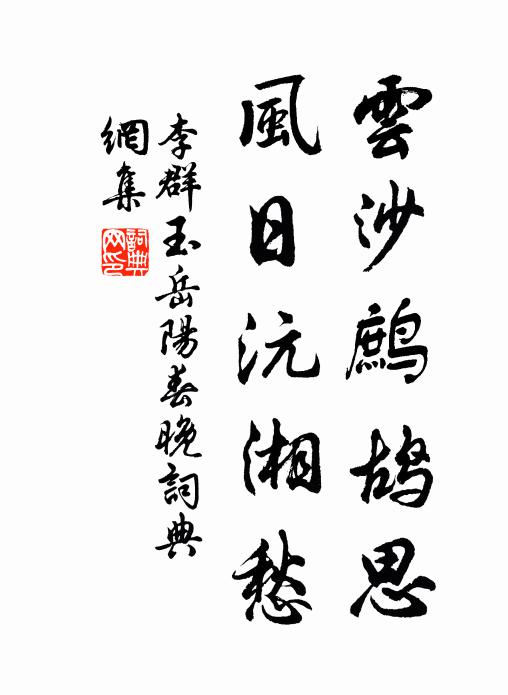 雲沙鷓鴣思
風日沅湘愁
李群玉岳陽春晚詞典
網集
詞典網印